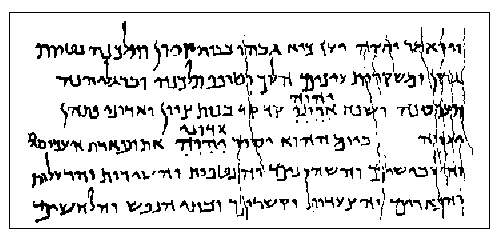 ויואמר יהוה יען כיא גבהו בנות ציון ותלכנה נטוות
גרון ומשקרות עינים הלוך וטופף תלכנה וברגליהנה
תעכסנה ושפח
יהוה
אדוני קדקד בנות ציון ואדוני פתהן
יערה ביום ההוא יסיר
אדוני
יהוה את תפארת העכיסים
והשבישים והשהרונים והנטפות והשירות והרעלות
והפארים והצעדות והקשרים ובתי הנפש והלחשים